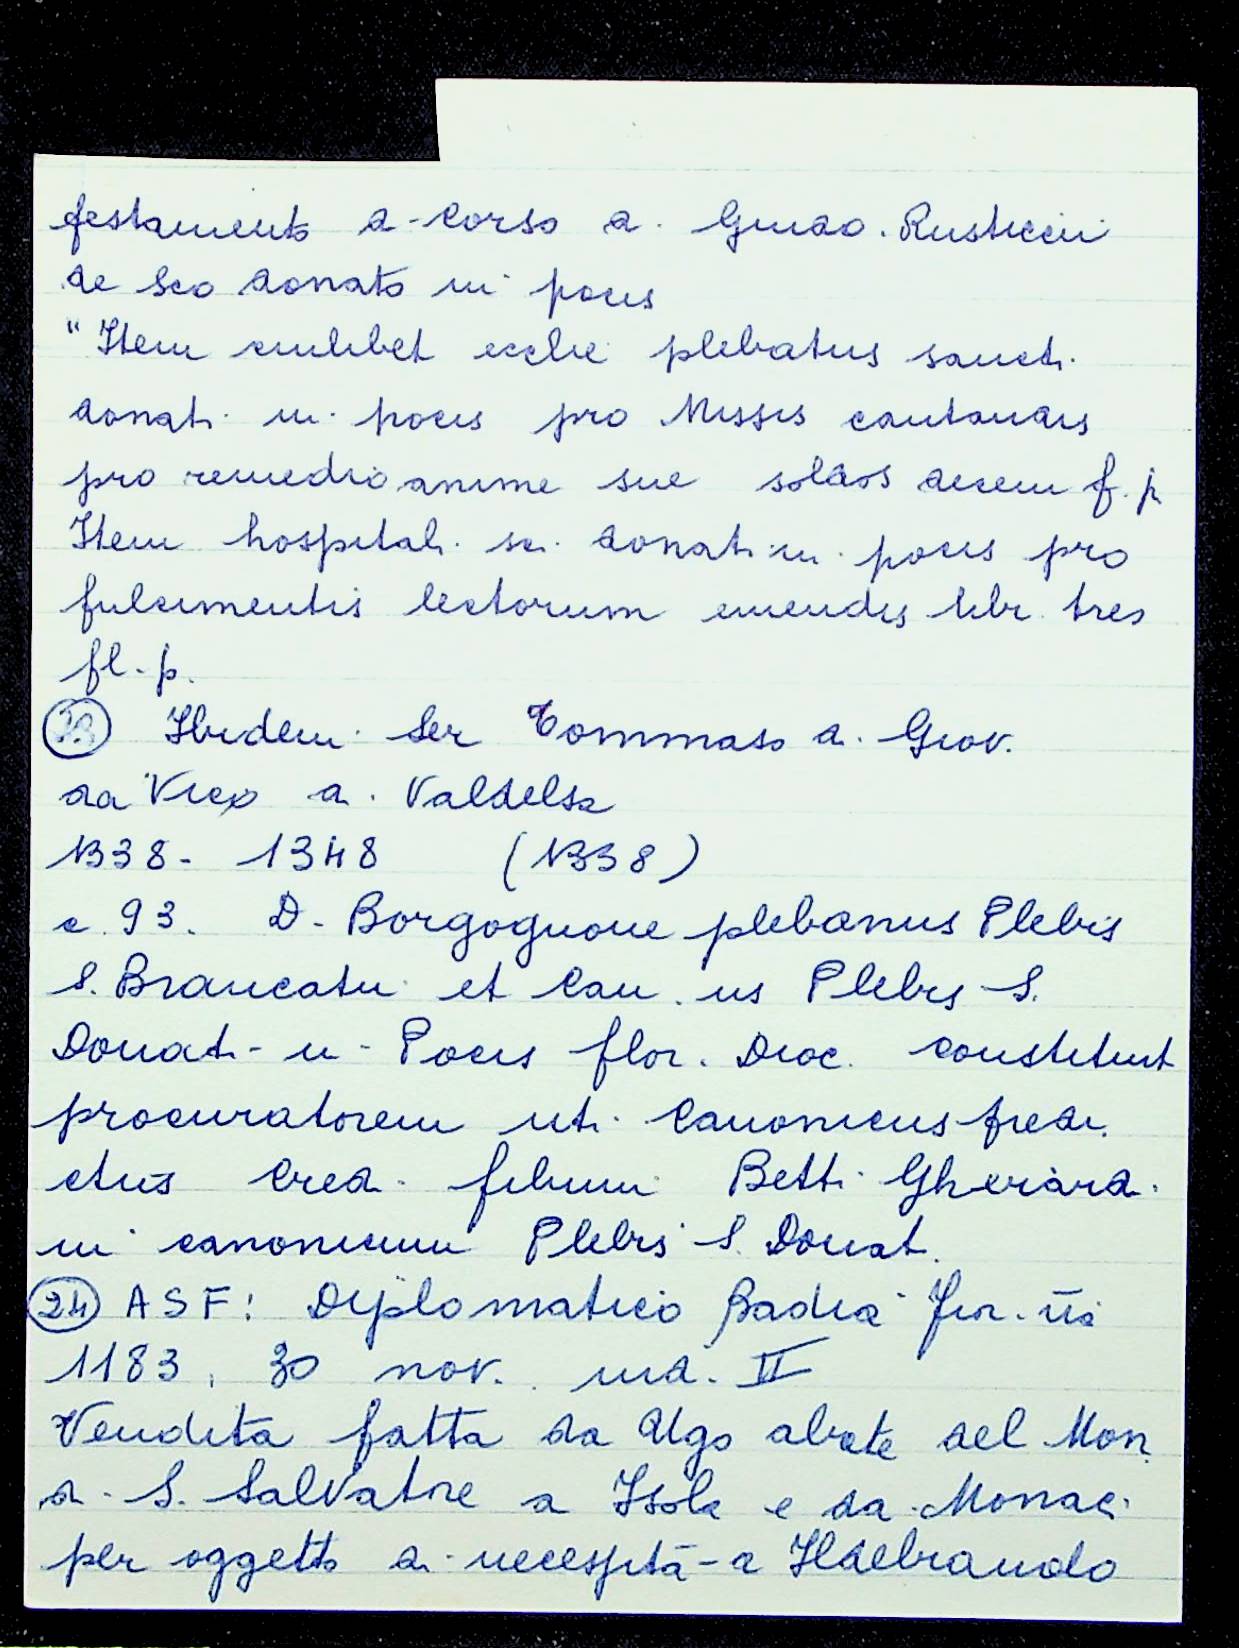 testamento di Corso di Guido Rusticcii
de Sco donato in pocis
"Item cuilibet ecclie plebatus sancti
donati in pocis pro Missis cantandis
pro remedio anime sue soldos decem f. p.
Item hospitali sci donati in pocis pro
fulcimentis lectorum emendis libr. tres
fl. p.
23 Ibidem Ser Tommaso di Giov.
da Vico di Valdelsa
1338 - 1348 (1338)
c. 93. D. Borgognone plebanus Plebis
S. Brancatii et Can.us Plebis S.
Donati in Pocis flor. Dioc. constituit
procuratorem uti canonicus predi
ctus Cred. filium Betti Gherardi
ni canonicum Plebis S. Donat.
24 ASF: Diplomatico Badia Fior.na
1183, 30 nov. ind. II
Vendita fatta da Ugo abate del Mon.
di S. Salvatore a Isola e da Monaci
per oggetto di necessità a Ildebrando